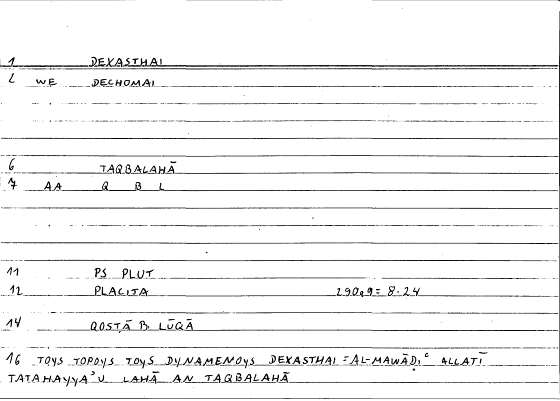 1 DEXASTHAI
2 WE DECHOMAI
6 TAQBALAHĀ
7 AA Q B L
11 PS PLUT
12 PLACITA 290,9= 8.24
14 QOSṬĀ B LŪQĀ
16 TOYS TOPOYS TOYS DYNAMENOYS DEXASTHAI = AL-MAWĀḌIʿ ALLATĪ
TATAHAYYAʾU LAHĀ AN TAQBALAHĀ